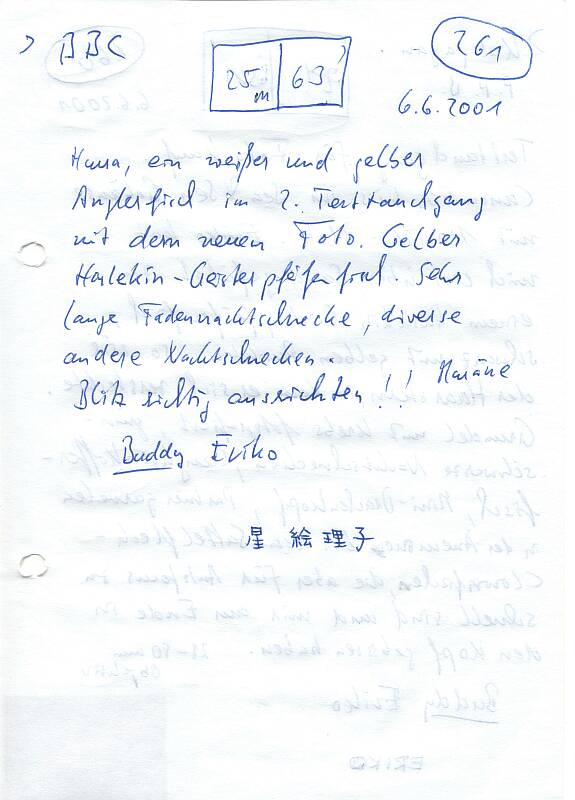 BBC
25 m 63'
261
6.6.2001
Hurra, ein weißer und gelber
Anglerfisch im 2. Testtauchgang
mit dem neuen Foto. Gelber
Harlekin-Geisterpfeifenfisch. Sehr
lange Fadennacktschnecke, diverse
andere Nacktschnecken.
Blitz richtig ausrichten!! Muräne
Buddy Eriko
星 絵理子